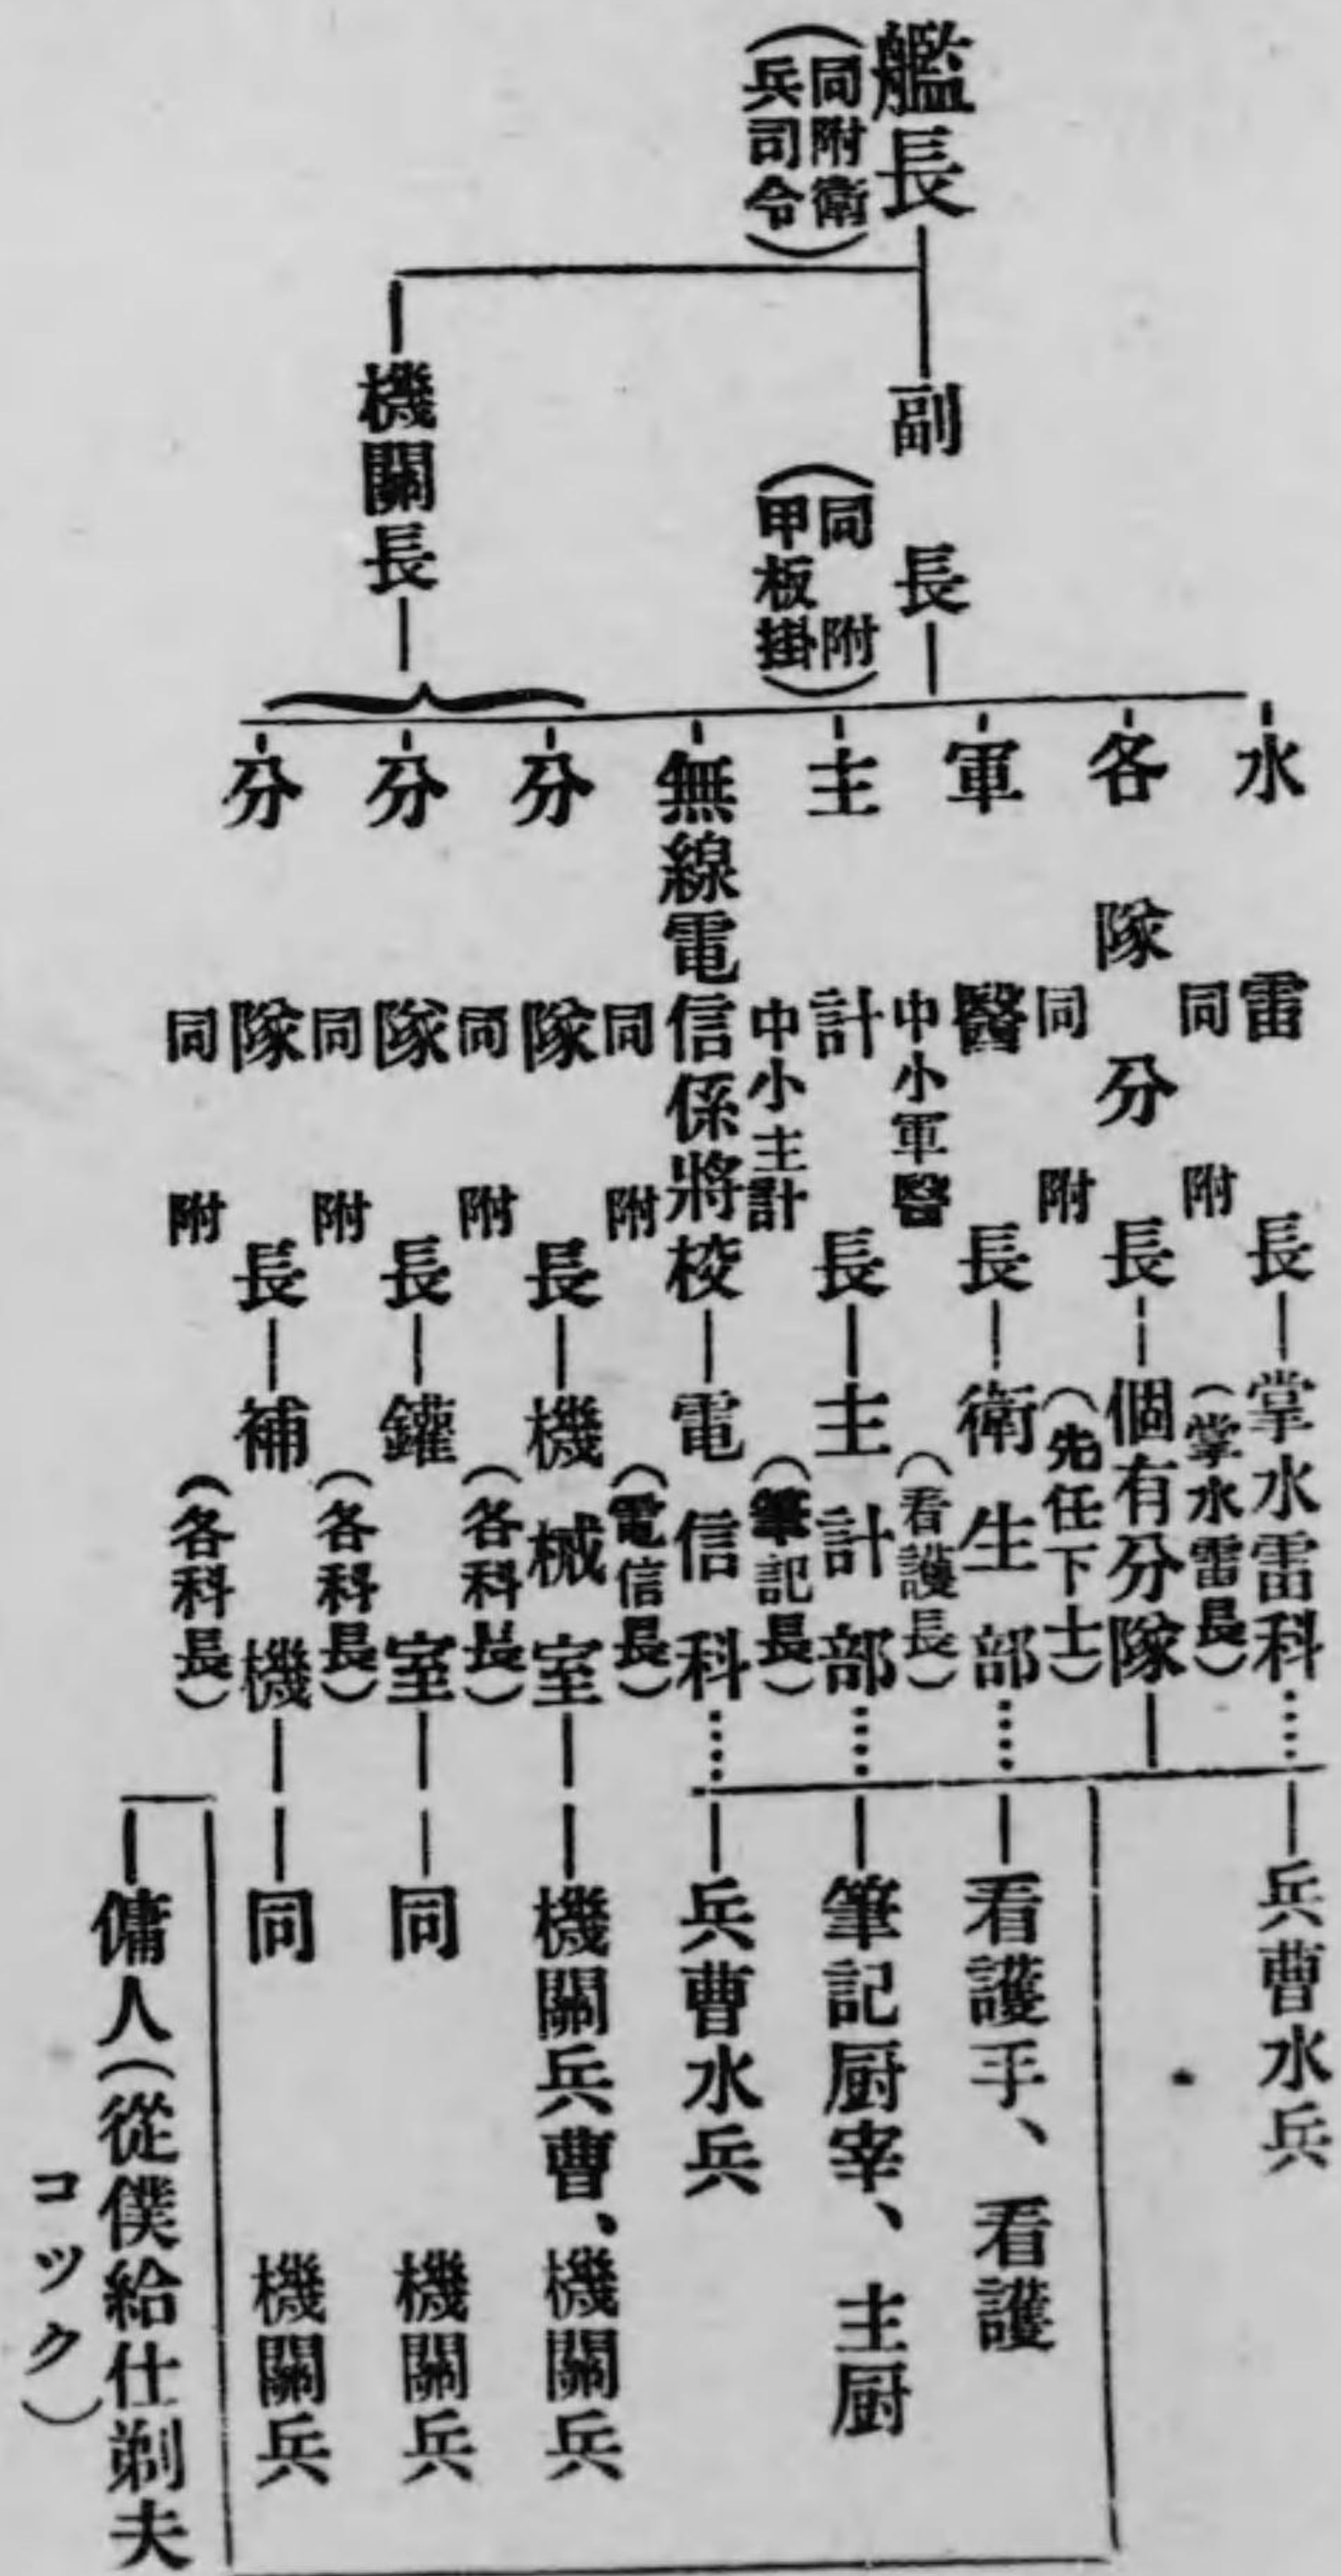 艦長
(同附衛
兵司令)
副長
(同附
甲板掛)
機關長
水雷長
同附
掌水雷科
(掌水雷長)
兵曹水兵
各隊分長
同附
個有分隊
(先任下士)
軍醫長
中小軍醫
衛生部
(看護長)
看護手、看護
主計長
中小主計
主計部
(筆記長)
筆記厨宰、主厨
無線電信係將校
同附
電信科
(電信長)
兵曹水兵
分隊長
同附
機械室
(各科長)
機關兵曹、機關兵
分隊長
同附
鑵室
(各科長)
同 機關兵
分隊長
同附
補機
(各科長)
同 機關兵
傭人(從僕給仕剃夫
コック)